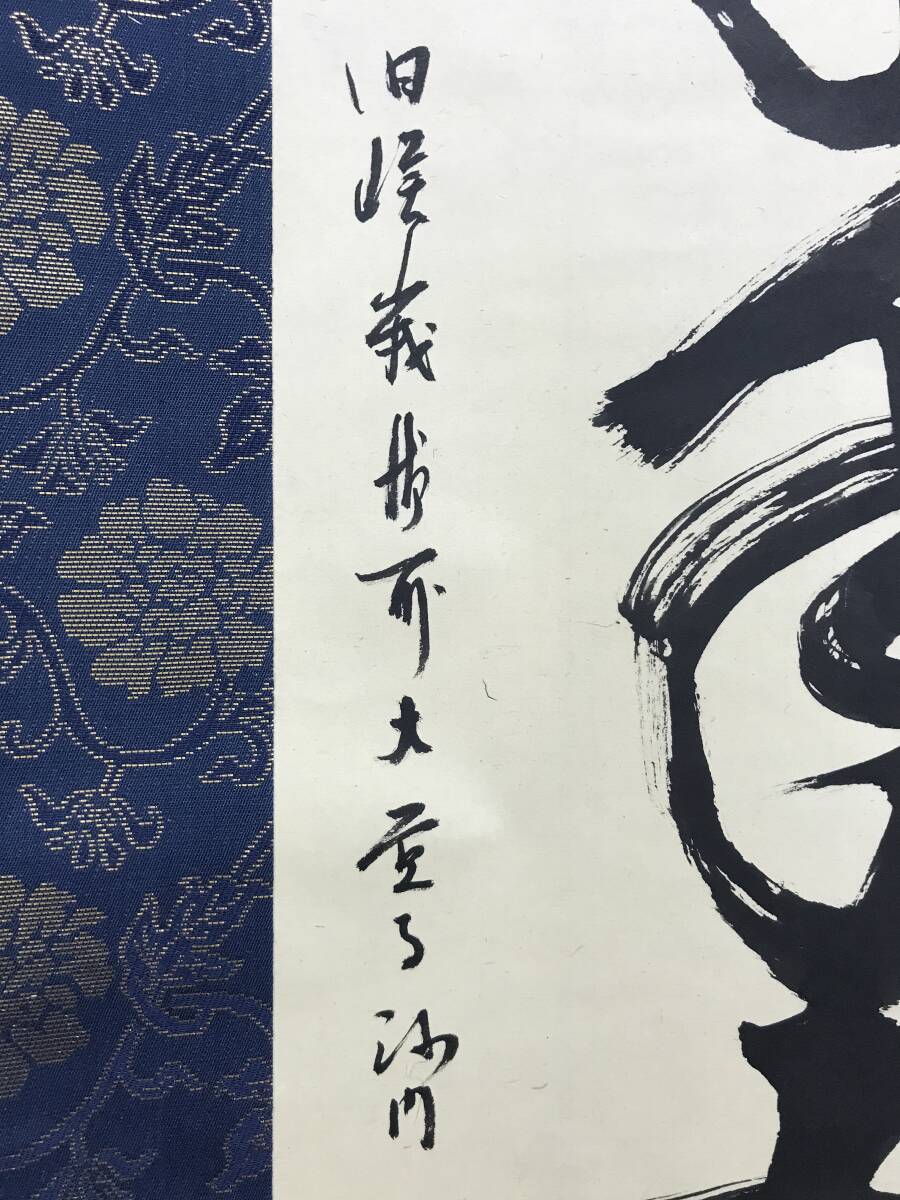 旧嵯峩御所大覚寺沙門